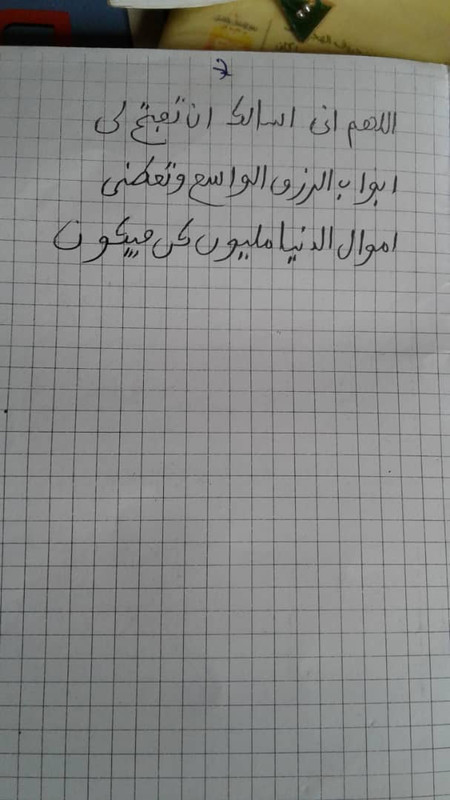 2
اللهم انى اسالك ان تفتح لى
ابواب الرزق الواسع وتعطنى
اموال الدنيا مليون كن فيكون